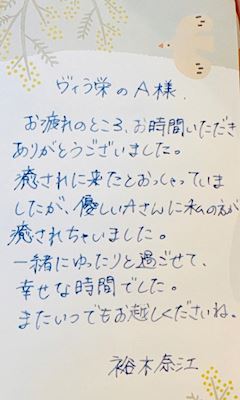 ヴィラ栄のA様.
お疲れのところ、お時間いただき
ありがとうございました。
癒されに来たとおっしゃっていま
したが、優しいAさんに私の方が
癒されちゃいました。
一緒にゆったりと過ごせて、
幸せな時間でした。
またいつでもお越しくださいね。
裕木奈江